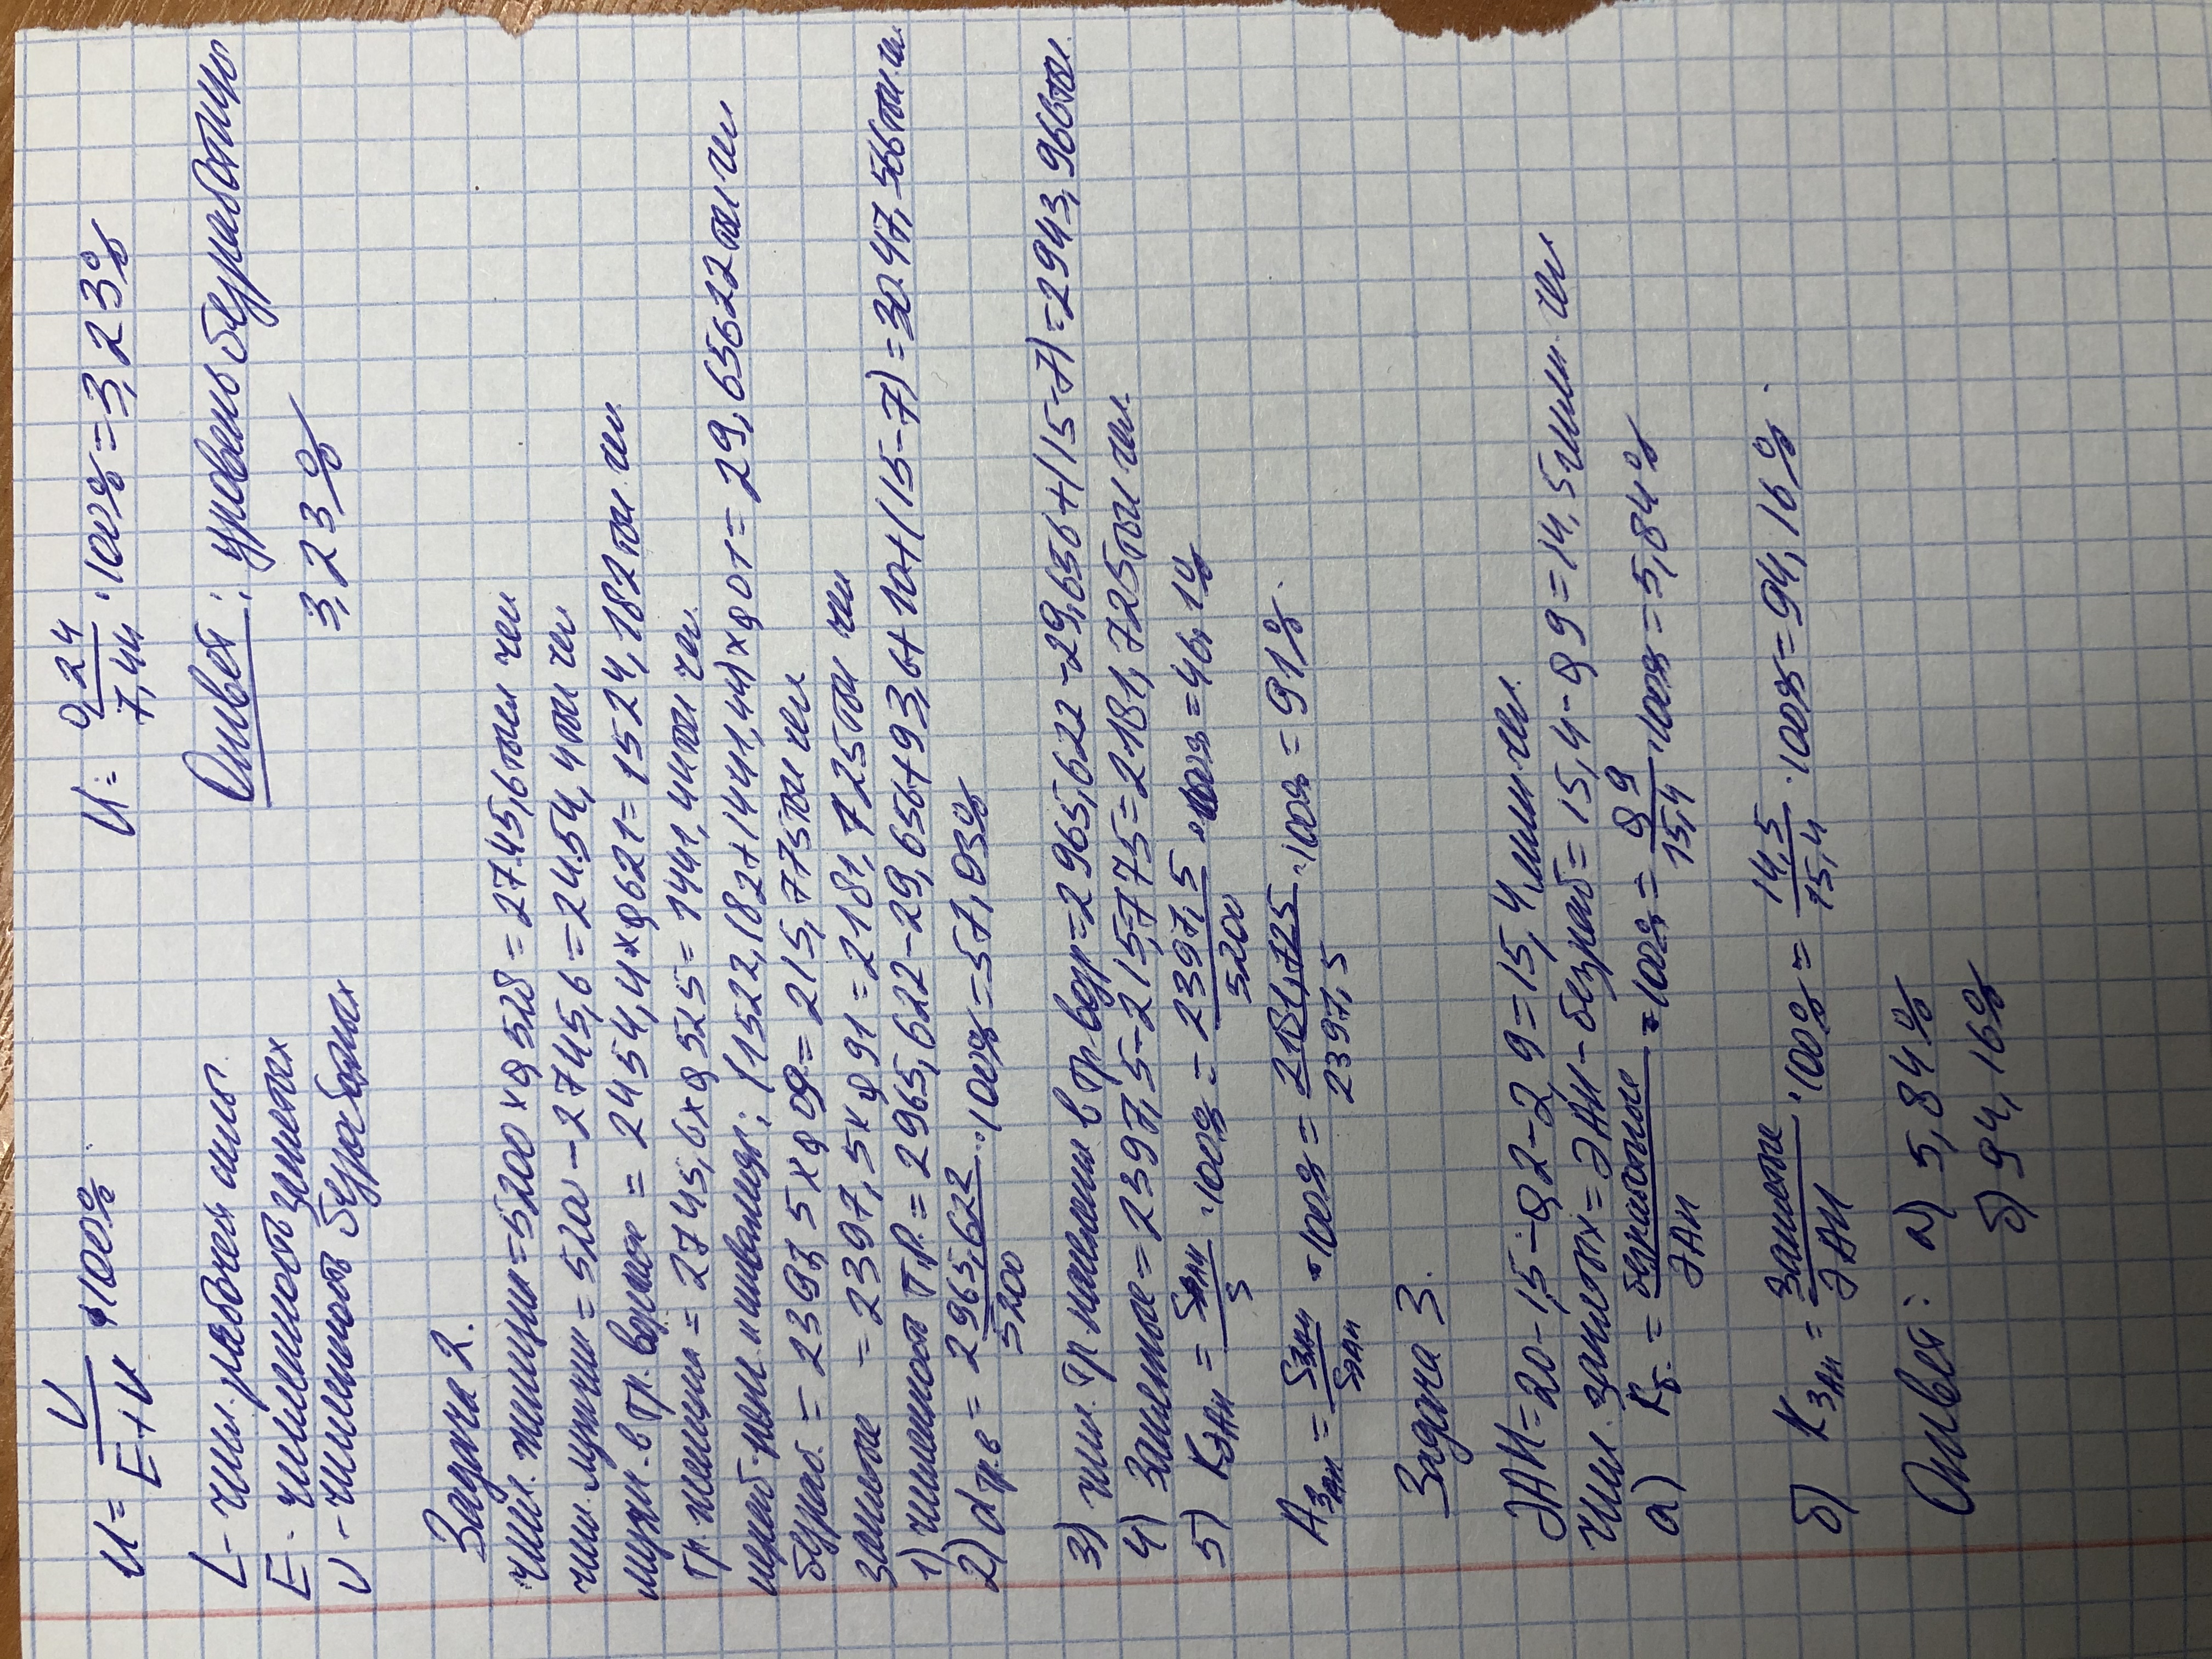 u = U/E+U · 100%
u = 0,24/7,44 · 100% = 3,23%
L - числ. рабочей силы
E - численность занятых
U - численность безработных
Ответ: уровень безработицы
3,23%
Задача 2.
числ. женщин = 5200 × 0,528 = 2745,6 тыс чел
числ. мужчин = 5200 - 2745,6 = 2454,4 тыс чел
мужч. в тр. возрасте = 2454,4 × 0,621 = 1524,182 тыс. чел
тр. женщины = 2745,6 × 0,525 = 1441,44 тыс чел.
нераб. пенс. и инвалиды: (1522,182 + 1441,44) × 0,01 = 29,65622 тыс чел
безраб. = 2397,5 × 0,09 = 215,775 тыс чел
занятые = 2397,5 × 0,91 = 2181,725 тыс чел
1) численность т.р. = 2965,622 - 29,656 + 93,6 + 10 + (15-7) = 3047,566 тыс ч.
2) d тр.в = 2965,622/5200 · 100% = 57,03%
3) числ. тр. населения в тр. возр = 2965,622 - 29,656 + (15-7) = 2943,966 тыс.
4) Занятые = 2397,5 - 215,775 = 2181,725 тыс чел.
5) Kэан = Sэан/S · 100% = 2397,5/5200 · 100% = 46,1%
Aзан = Sзан/Sэан · 100% = 2181,725/2397,5 · 100% = 91%.
Задача 3.
ЭАН = 20 - 1,5 - 0,2 - 2,9 = 15,4 млн чел.
Числ. занятых = ЭАН - безраб = 15,4 - 0,9 = 14,5 млн. чел
а) Kб = безработные/ЭАН · 100% = 0,9/15,4 · 100% = 5,84%
б) Kзан = занятые/ЭАН · 100% = 14,5/15,4 · 100% = 94,16%.
Ответ: а) 5,84%
б) 94,16%